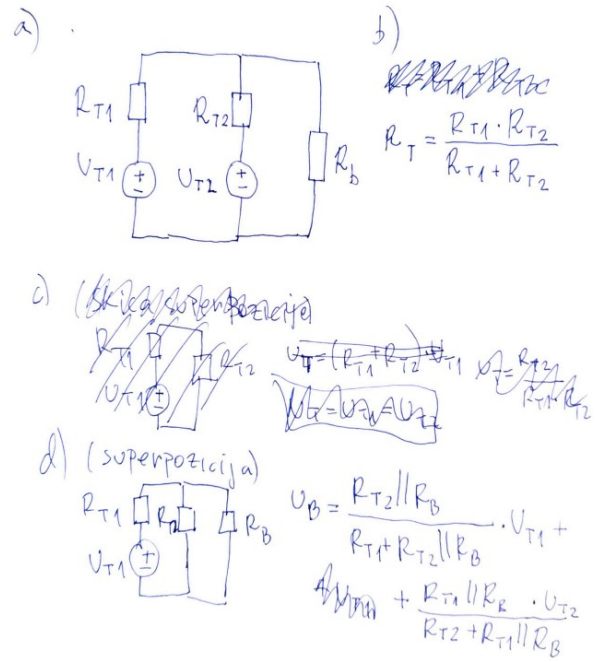 a)
R_T1
R_T2
U_T1
U_T2
R_b
b)
R_T = (R_T1 · R_T2) / (R_T1 + R_T2)
c) (skica superpozicija)
R_T1
R_T2
U_T1
U_T = (R_T1 + R_T2) · U_T1
d) (superpozicija)
R_T1
R_B
U_T1
U_B = (R_T2||R_B) / (R_T1 + R_T2||R_B) · U_T1 +
+ (R_T1||R_B) / (R_T2 + R_T1||R_B) · U_T2